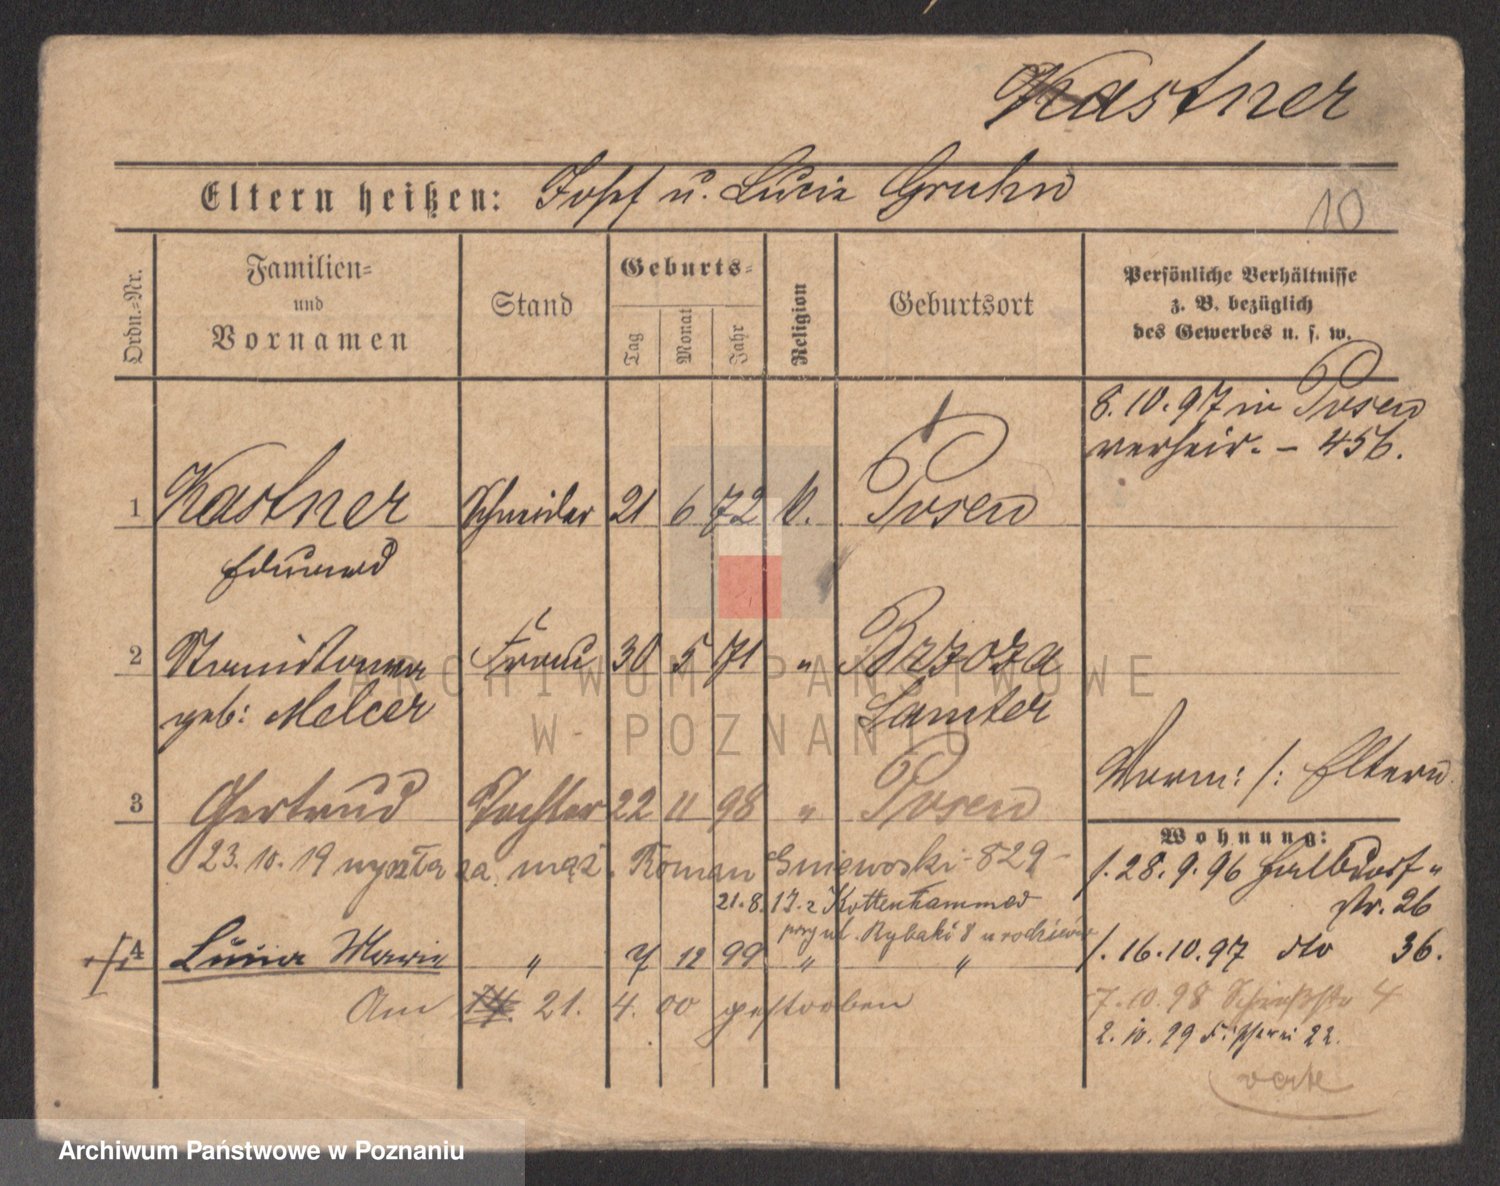 Kastner
Eltern heißen: Josef u. Lucie Gruhn
10
Ordn.-Nr.
Familien-
und
Vornamen
Stand
Geburts-
Tag
Monat
Jahr
Religion
Geburtsort
Persönliche Verhältnisse
z. B. bezüglich
des Gewerbes u. s. w.
8.10.97 in Posen
verheir. - 456.
1 Kastner Schneider 21 6 72 k. Posen
Eduard
2 Stanislawa Frau 30 5 71 " Brzoza
geb: Melcer Samter
Vorm: /: Eltern
3 Gertrud Tochter 22 11 98 " Posen
Wohnung:
23.10.19 wyszła za mąż. Roman Gniewoski - 829 -
/. 28.9.96 Halbdorf-
str. 26
21.8. Kottenhammed
przy ul. Rybaki 8 u rodziców
4 Lucia Marie " 7 12 99 " "
/. 16.10.97 dto 36.
Am 21. 4. 00 gestorben
7.10.98 Schießstr 4
2.10.99 Fischerei 22.
verte
ARCHIWUM PAŃSTWOWE
W POZNANIU
Archiwum Państwowe w Poznaniu